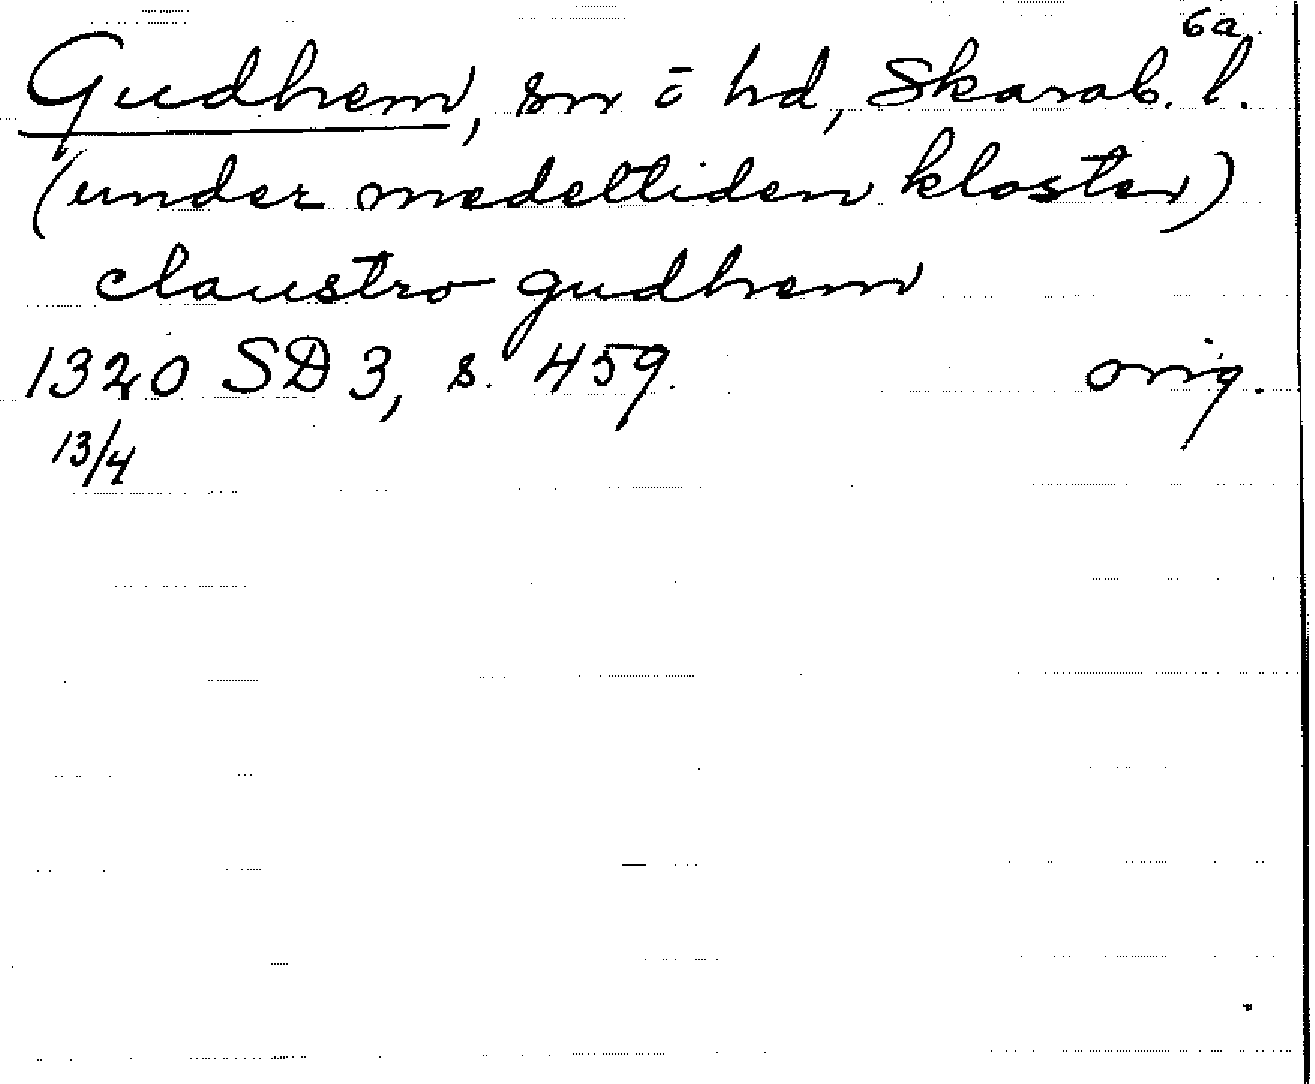 6a.
Gudhem, sn o hd, Skarab. l.
(under medeltiden kloster)
claustro gudhem
1320 SD 3, s. 459. orig.
13/4